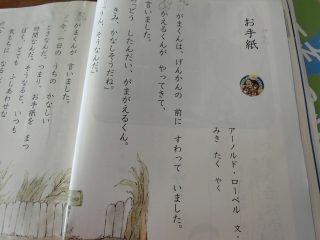 お手紙
アーノルド・ローベル 文・
みき たく やく
がまくんは、げんかんの 前に すわって いました。
かえるくんが やって きて、
言いました。
どう したんだい、がまがえるくん。
きみ、かなしそうだね。」
そうなんだ。」
がまくんが 言いました。
一日の うちの かなしい
時なんだ。つまり、お手紙を まつ
時間なんだ。そうなると、いつも
ぼく、とても ふしあわせな